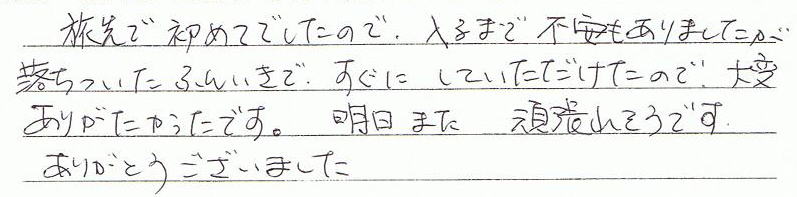 旅先で初めてでしたので、入るまで不安もありましたが
落ちついたふんいきで、すぐに していただけたので、大変
ありがたかったです。 明日 また 頑張れそうです
ありがとうございました